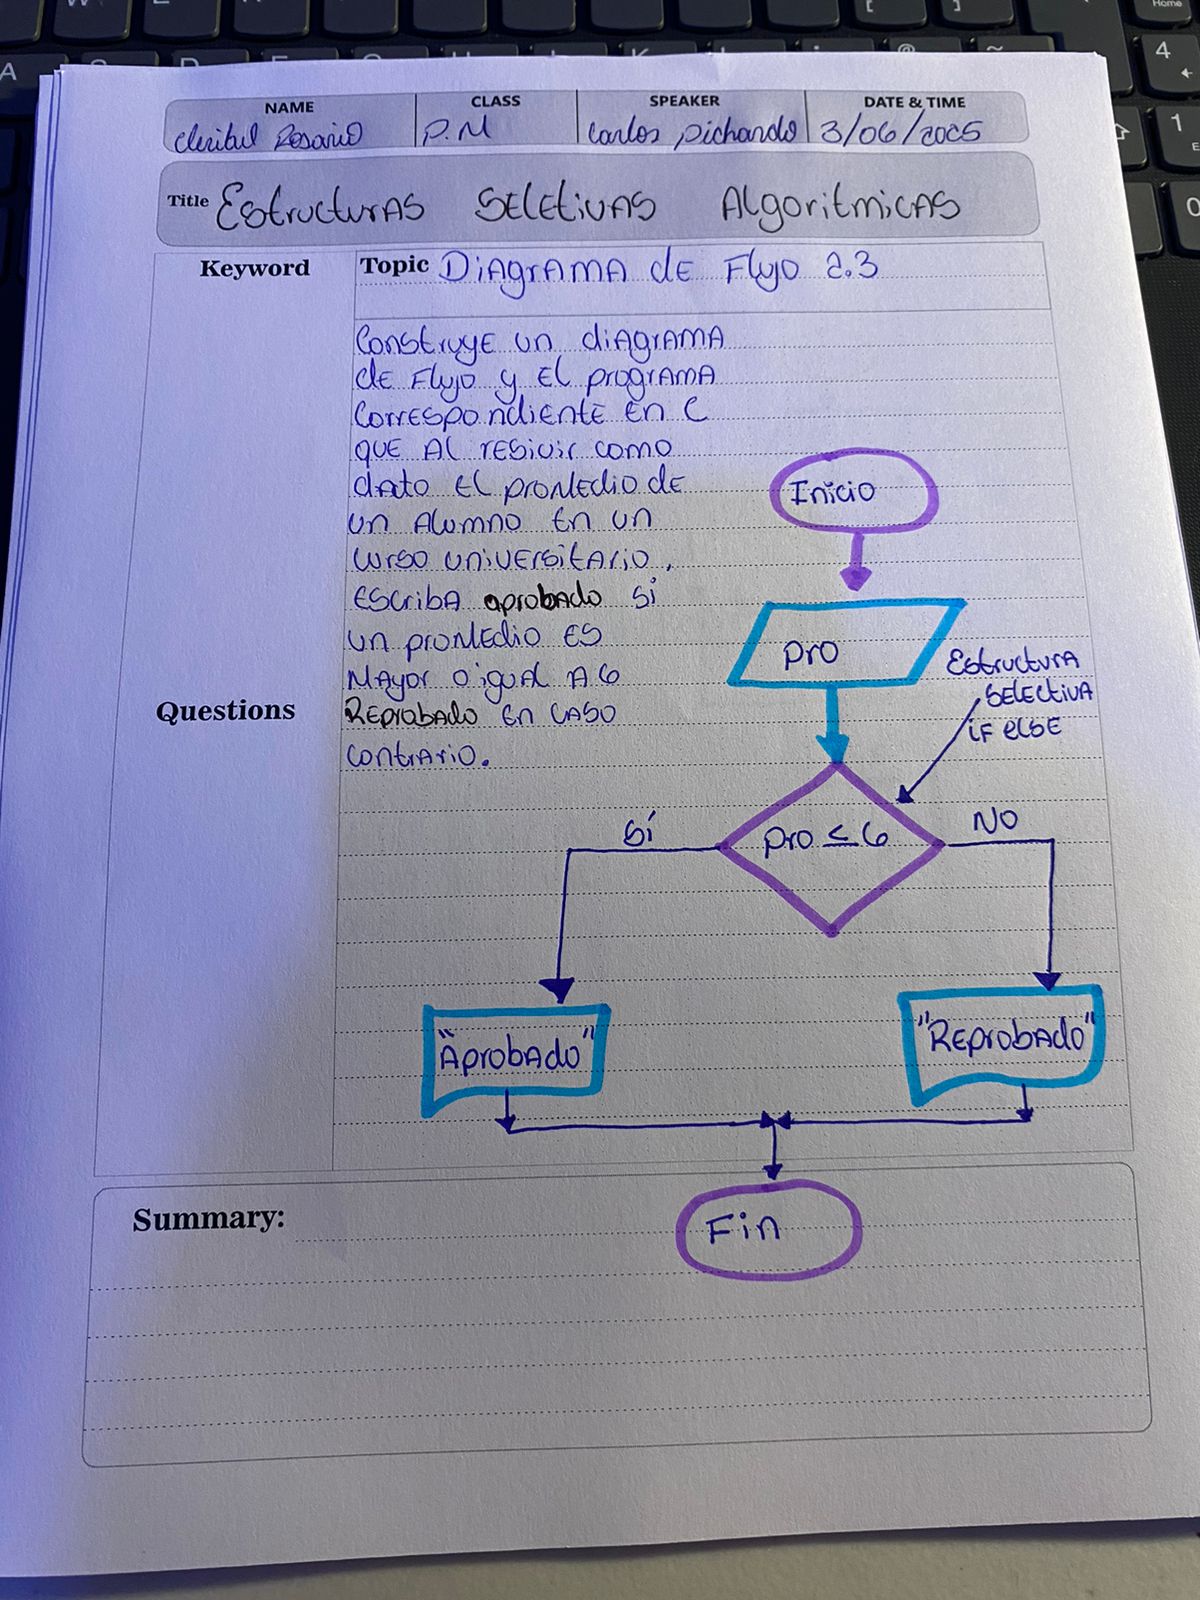 NAME
CLASS
SPEAKER
DATE & TIME
Rosario
P.M
Carlos Pichardo
3/06/2025
Title Estructuras Seletivas Algoritmicas
Keyword
Topic Diagrama de Flujo 2.3
Construye un diagrama
de Flujo y el programa
correspondiente en C
que al resivir como
dato el promedio de
un Alumno en un
curso universitario,
escriba aprobado si
un promedio es
Mayor o igual A 6
Reprobado en caso
contrario.
Questions
Inicio
pro
Estructura
Selectiva
if else
pro ≤ 6
Sí
NO
"Aprobado"
"Reprobado"
Fin
Summary: